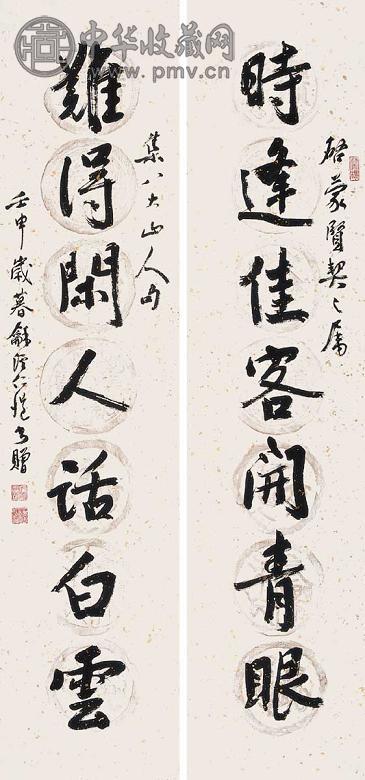 中华收藏网
www.pmv.cn
時逢佳客開青眼
啓蒙賢契之属
難得閑人話白雲
集八大山人句
壬申歲暮龢溪仁愷書贈